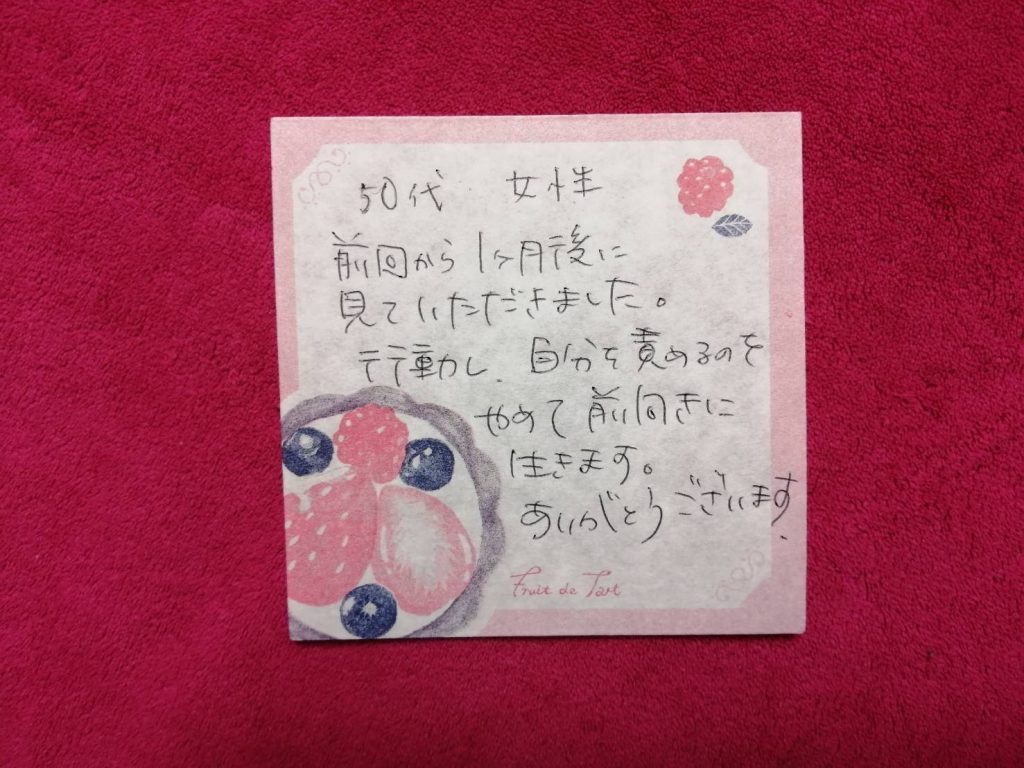 50代 女性
前回から1ヶ月後に
見ていただきました。
行動し、自分を責めるのを
やめて前向きに
生きます。
ありがとうございます.
Fruit de Tart